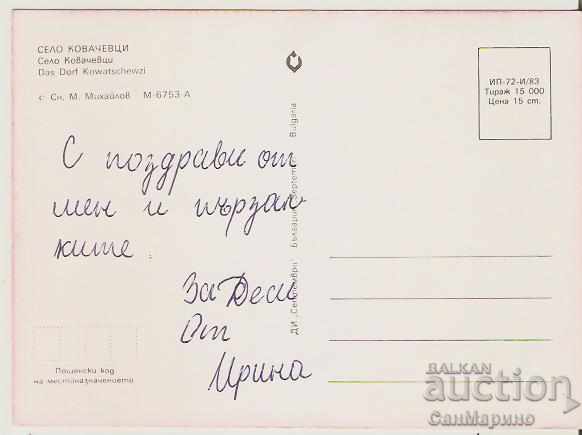 СЕЛО КОВАЧЕВЦИ
Село Ковачевци
Das Dorf Kowatschewzi
с Сн. М. Михайлов М-6753-А
ИП-72-И/83
Тираж 15 000
Цена 15 ст.
С поздрави от
мен и пързал
ките
За Деси
От
Ирина
ДИ „Септември" България Septemvri Bulgaria
Пощенски код
на местоназначението
BALKAN
auction
СанМарино